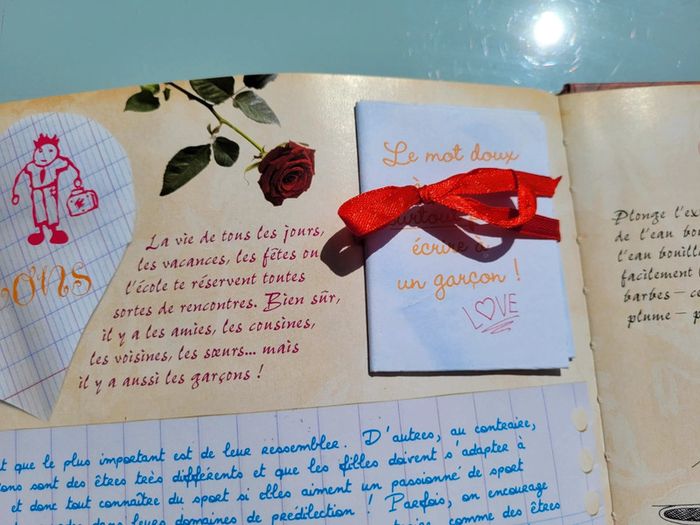 ons
La vie de tous les jours,
les vacances, les fêtes ou
l'école te réservent toutes
sortes de rencontres. Bien sûr,
il y a les amies, les cousines,
les voisines, les sœurs... mais
il y a aussi les garçons !
Le mot doux
à
surtout
écrire à
un garçon !
LOVE
Plonge l'ex
de l'eau bou
l'eau bouill
facilement
barbes – ce
plume – p
t que le plus important est de leur ressembler. D'autres, au contraire,
ons sont des êtres très différents et que les filles doivent s'adapter à
et donc tout connaître du sport si elles aiment un passionné de sport
dans leurs domaines de prédilection ! Parfois, on encourage
comme des êtres